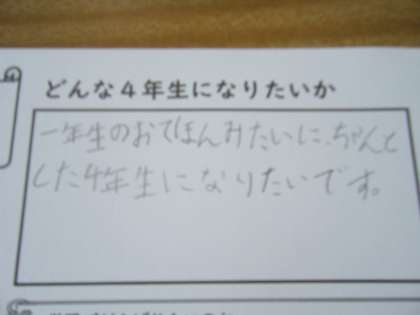 どんな4年生になりたいか
一年生のおてほんみたいに、ちゃんと
した4年生になりたいです。